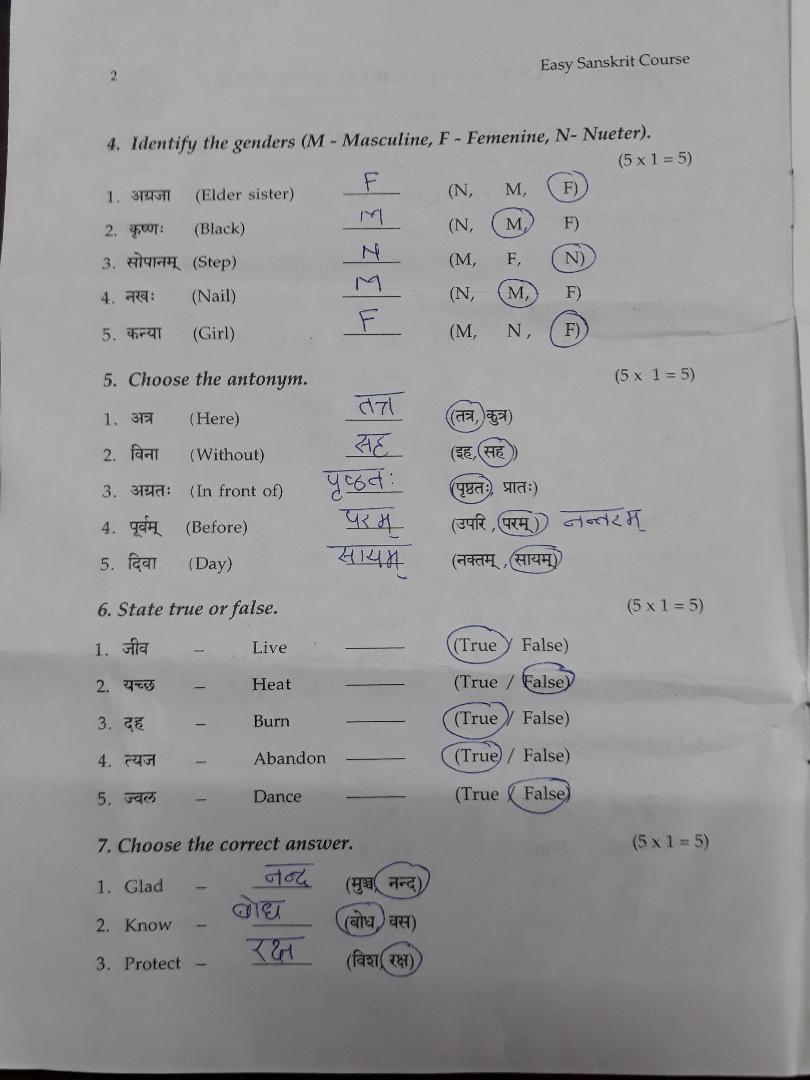 2 Easy Sanskrit Course
4. Identify the genders (M - Masculine, F - Femenine, N- Nueter).
(5 x 1 = 5)
1. अग्रजा (Elder sister) F (N, M, F)
2. कृष्णः (Black) M (N, M, F)
3. सोपानम् (Step) N (M, F, N)
4. नखः (Nail) M (N, M, F)
5. कन्या (Girl) F (M, N, F)
5. Choose the antonym. (5 x 1 = 5)
1. अत्र (Here) तत्र (तत्र, कुत्र)
2. विना (Without) सह (इह, सह)
3. अग्रतः (In front of) पृष्ठतः (पृष्ठतः, प्रातः)
4. पूर्वम् (Before) परम् (उपरि, परम्) नन्तरम्
5. दिवा (Day) सायम् (नक्तम्, सायम्)
6. State true or false. (5 x 1 = 5)
1. जीव – Live (True / False)
2. यच्छ – Heat (True / False)
3. दह – Burn (True / False)
4. त्यज – Abandon (True / False)
5. ज्वल – Dance (True / False)
7. Choose the correct answer. (5 x 1 = 5)
1. Glad – नन्द (मुञ्च, नन्द)
2. Know – बोध (बोध, वस)
3. Protect – रक्ष (विश, रक्ष)